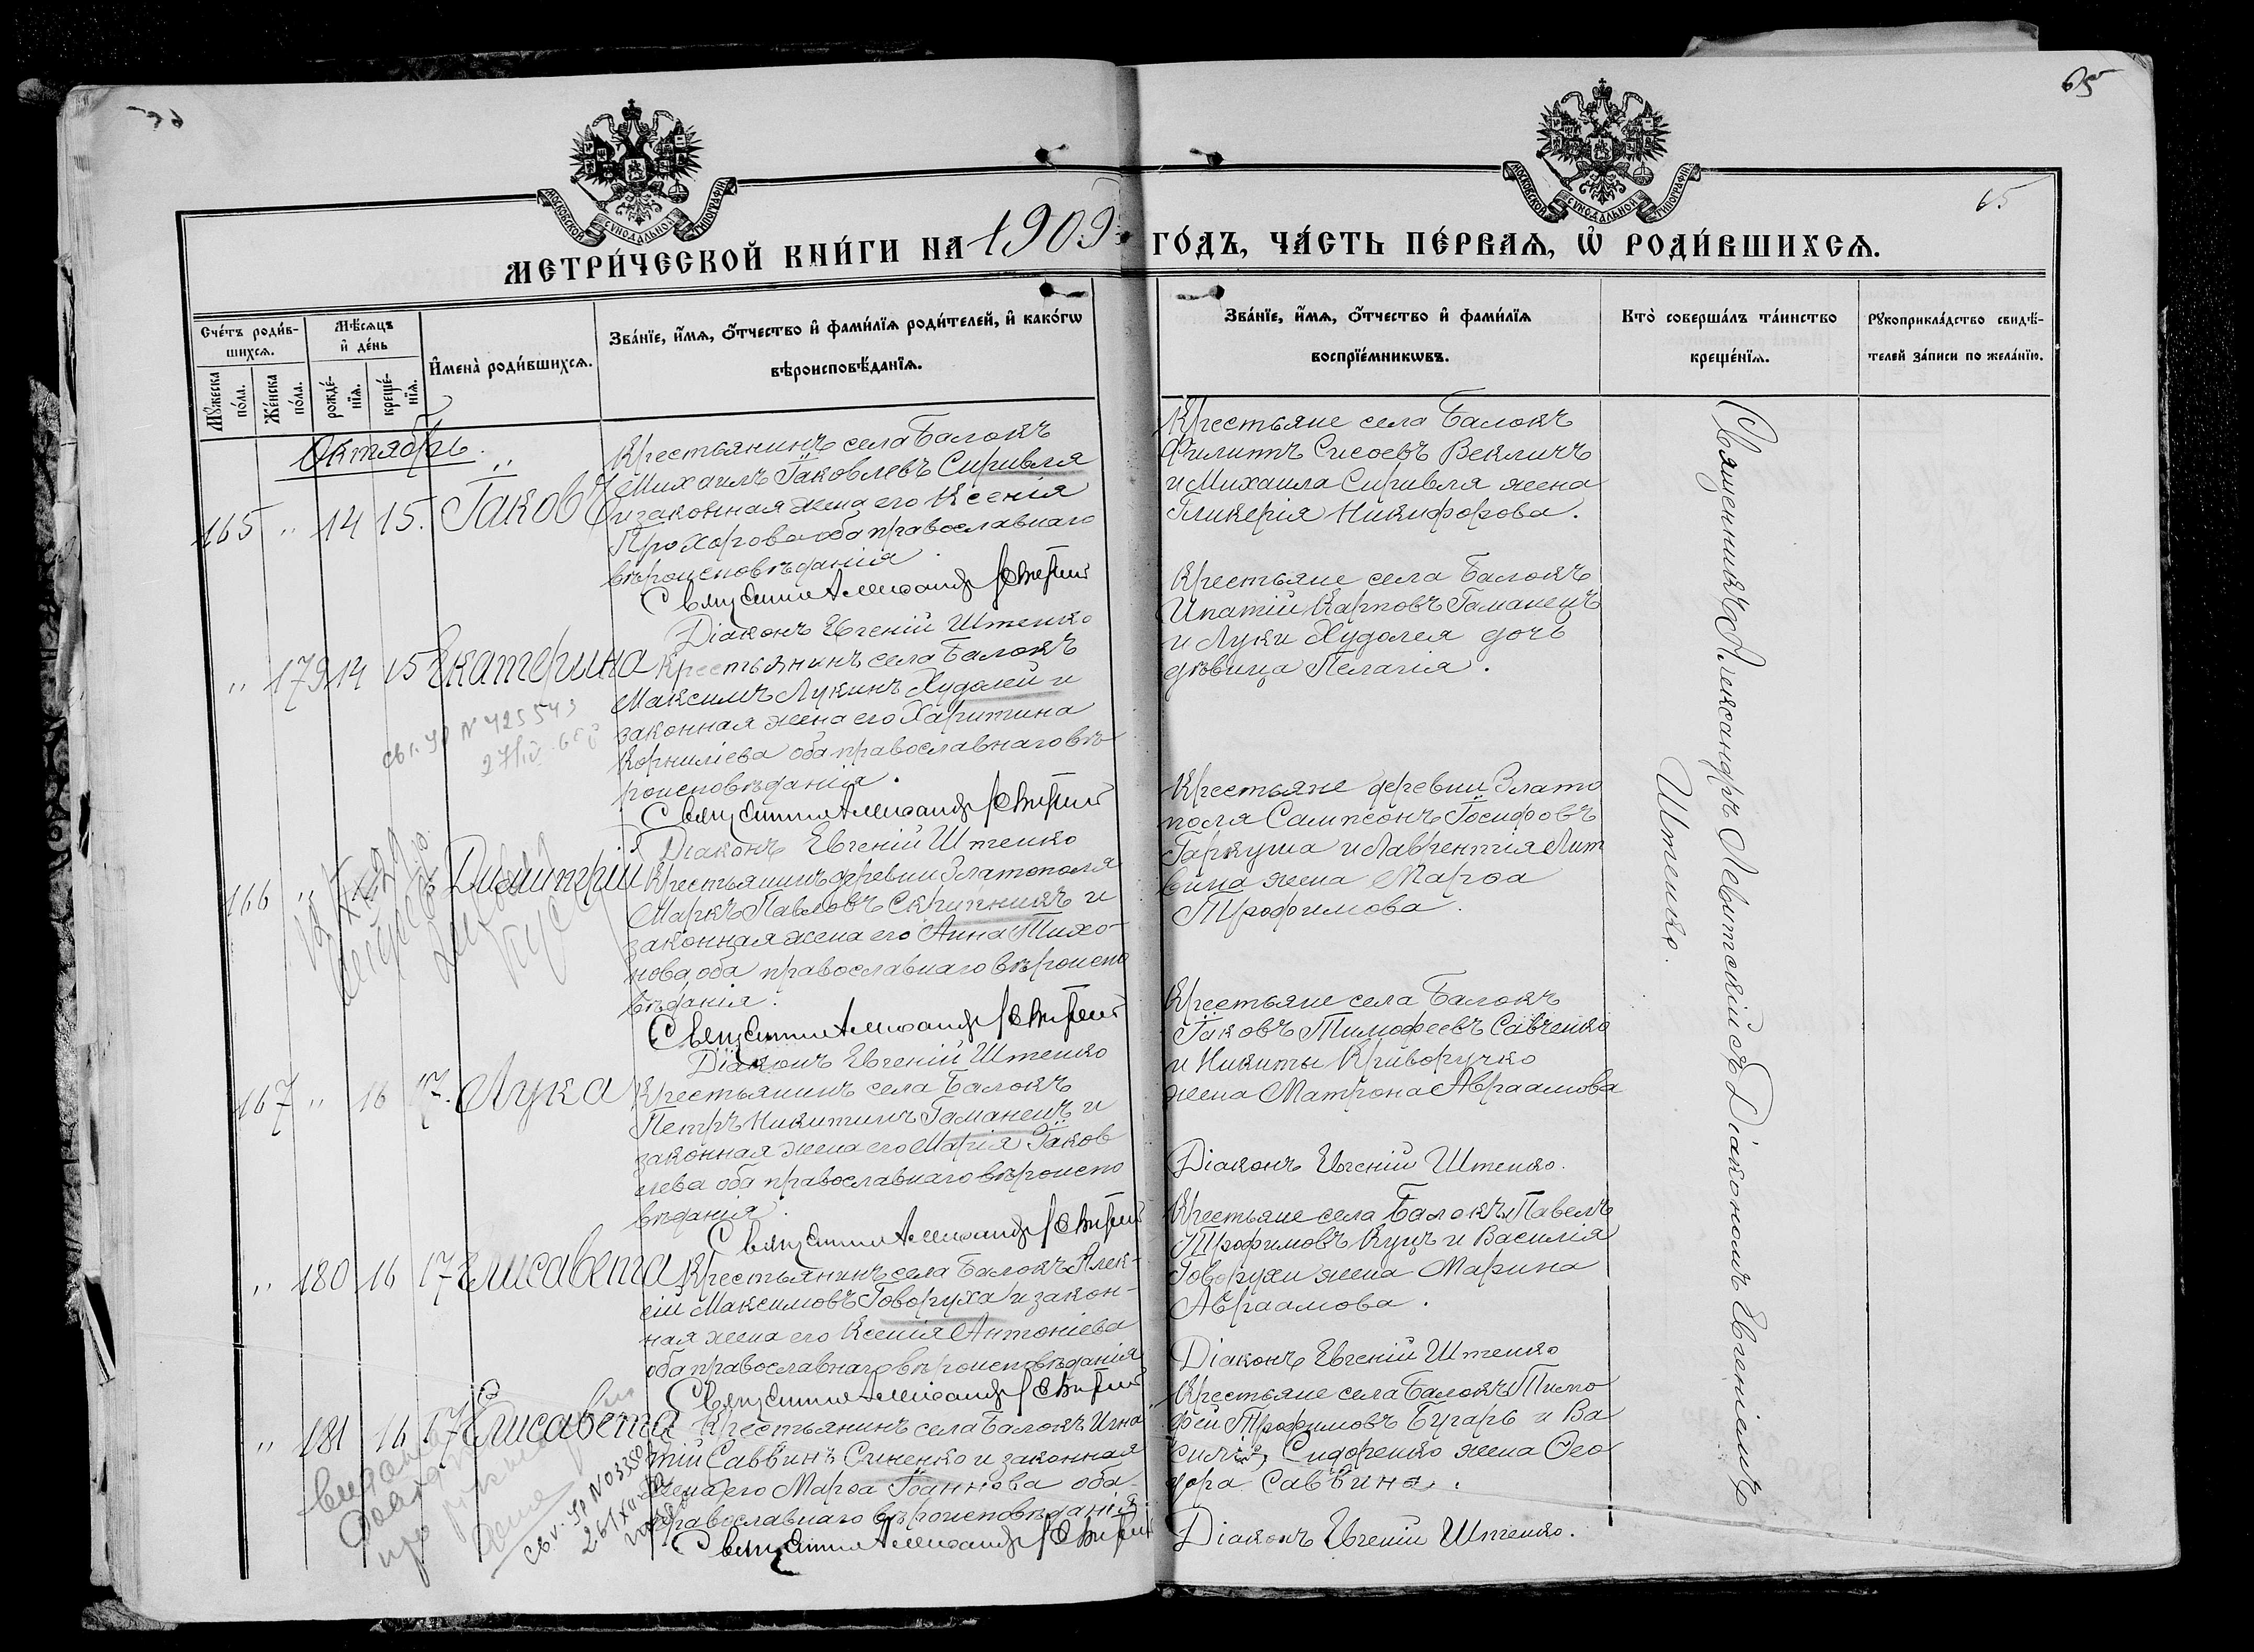 65
65
МОСКОВСКОЙ СѴНОДАЛЬНОЙ ТИПОГРАФІИ
МОСКОВСКОЙ СѴНОДАЛЬНОЙ ТИПОГРАФІИ
МЕТРИ́ЧЕСКОЙ КНИ́ГИ НА 1909 ГО́ДЪ, ЧА́СТЬ ПЕ́РВАѦ, Ѽ РОДИ́ВШИХСѦ.
Сче́тъ роди́в-
шихсѧ.
Мꙋ́жеска по́ла.
Же́нска по́ла.
Мѣ́сѧцъ
и҆ де́нь
рожде́-
нїѧ.
креще́-
нїѧ.
И҆мена̀ роди́вшихсѧ.
Зва́нїе, и҆́мѧ, ѻ҆́тчество и҆ фами́лїѧ роди́телей, и҆ како́гѡ
вѣроисповѣ́данїѧ.
Зва́нїе, и҆́мѧ, ѻ҆́тчество и҆ фами́лїѧ
воспрїе́мникѡвъ.
Кто̀ соверша́лъ та́инство
креще́нїѧ.
Рꙋкоприкла́дство свидѣ́-
телей за́писи по жела́нїю.
Октябрь.
165 " 14 15. Іаковъ
Крестьянинъ села Балокъ
Михаилъ Іаковлевъ Сиривля
и законная жена его Ксенія
Прохорова оба православнаго
вѣроисповѣданія.
Священник Александр Левитский
Діаконъ Евгеній Штепко
Крестьяне села Балокъ
Филиппъ Сисоевъ Векличъ
и Михаила Сиривля жена
Гликерія Никифорова.
" 179 14 15 Екатерина
Крестьянинъ села Балокъ
Максимъ Лукинъ Худолей и
законная жена его Харитина
Корниліева оба православнаго вѣ
роисповѣданія.
Священник Александр Левитский
Діаконъ Евгеній Штепко
Крестьяне села Балокъ
Ипатій Карповъ Гаманецъ
и Луки Худолея дочь
дѣвица Пелагія.
166 " Димитрій
Крестьянинъ деревни Златополя
Маркъ Павловъ Скрипникъ и
законная жена его Анна Тихо-
нова, оба православнаго вѣроиспо
вѣданія.
Священник Александр Левитский
Діаконъ Евгеній Штепко
Крестьяне деревни Злато
поля Сампсонъ Іосифовъ
Гаркуша и Лаврентія Лит
вина жена Марѳа
Трофимова.
167 " 16 17. Лука
Крестьянинъ села Балокъ
Петръ Никитинъ Гаманецъ и
законная жена его Марія Іаков
лева оба православнаго вѣроиспо
вѣданія.
Священник Александр Левитский
Крестьяне села Балокъ
Іаковъ Тимофеевъ Савченко
и Никиты Криворучко
жена Матрона Авраамова
Діаконъ Евгеній Штепко.
" 180 16 17 Елисавета
Крестьянинъ села Балокъ Алек-
сій Максимовъ Говоруха и закон-
ная жена его Ксенія Антоніева
оба православнаго вѣроисповѣданія
Священник Александр Левитский
Крестьяне села Балокъ Павелъ
Трофимовъ Куцъ и Василія
Говорухи жена Марина
Авраамова.
Діаконъ Евгеній Штепко
" 181 16 17 Елисавета
Крестьянинъ села Балокъ Игна
тій Саввинъ Синенко и законная
жена его Марѳа Іоаннова оба
православнаго вѣроисповѣданія.
Священник Александр Левитский
Крестьяне села Балокъ Тимо
фей Трофимовъ Бугаръ и Ва
силія Сидоренко жена Ѳео
дора Саввина.
Діаконъ Евгеній Штепко.
Священникъ Александръ Левитскій съ Діакономъ Евгеніемъ
Штепко.